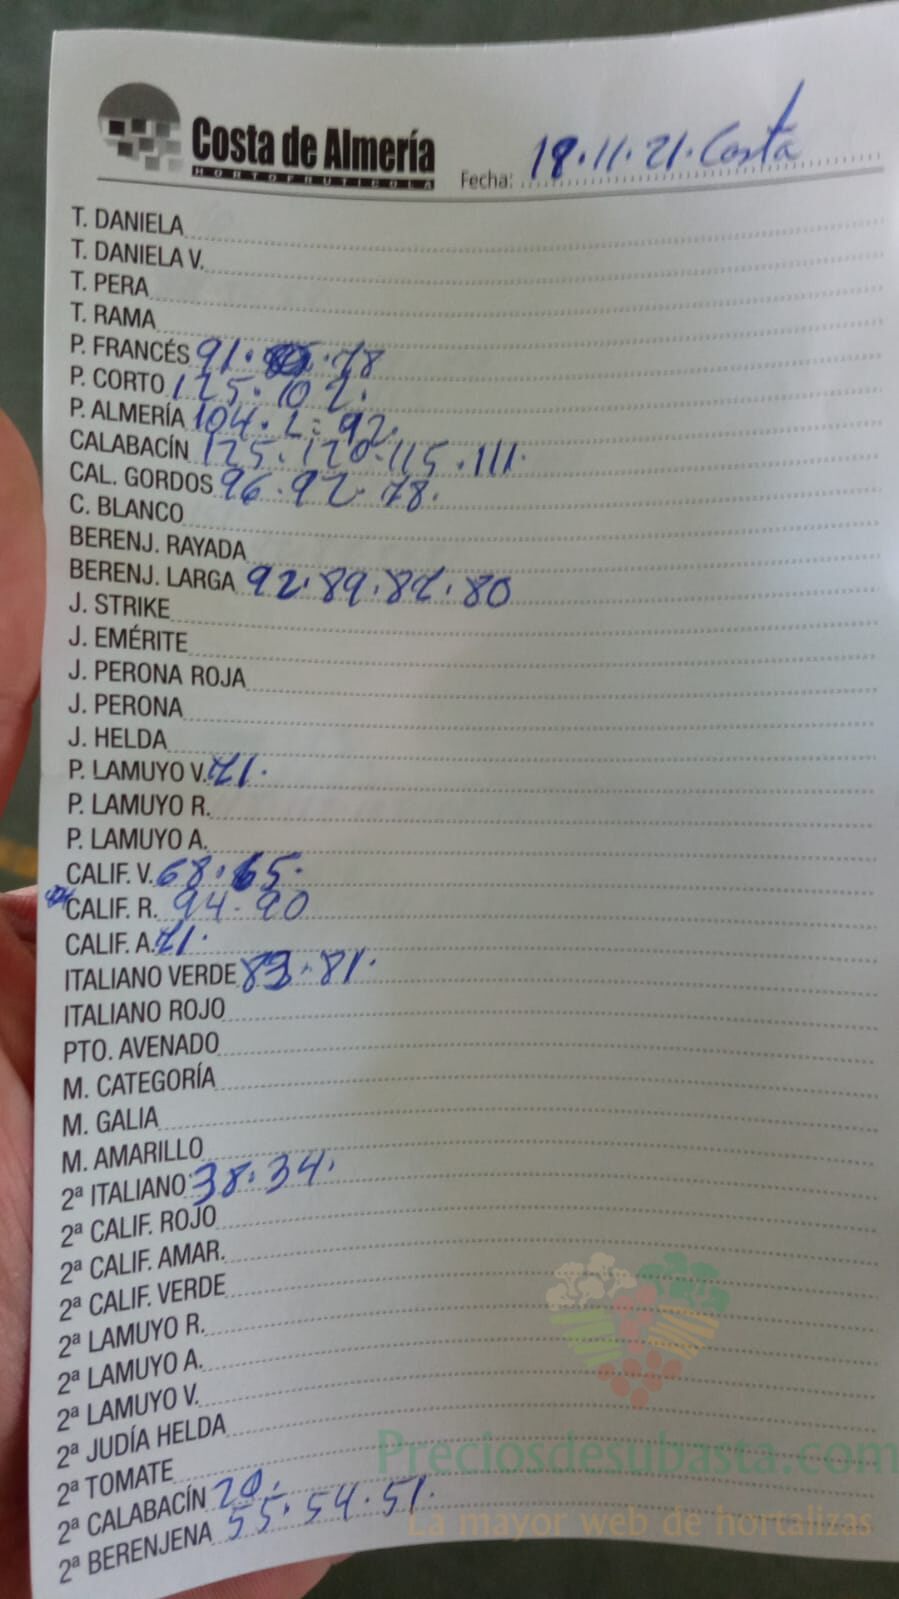 Costa de Almería
HORTOFRUTICOLA
Fecha: 18.11.21. Costa
T. DANIELA
T. DANIELA V.
T. PERA
T. RAMA
P. FRANCÉS 91. 78
P. CORTO 125. 102.
P. ALMERÍA 104. 92.
CALABACÍN 125. 120. 115. 111.
CAL. GORDOS 96. 92. 78.
C. BLANCO
BERENJ. RAYADA
BERENJ. LARGA 92. 89. 82. 80
J. STRIKE
J. EMÉRITE
J. PERONA ROJA
J. PERONA
J. HELDA
P. LAMUYO V. 71.
P. LAMUYO R.
P. LAMUYO A.
CALIF. V. 68. 65.
CALIF. R. 94. 90
CALIF. A. 71.
ITALIANO VERDE 83. 81.
ITALIANO ROJO
PTO. AVENADO
M. CATEGORÍA
M. GALIA
M. AMARILLO
2ª ITALIANO 38. 34.
2ª CALIF. ROJO
2ª CALIF. AMAR.
2ª CALIF. VERDE
2ª LAMUYO R.
2ª LAMUYO A.
2ª LAMUYO V.
2ª JUDÍA HELDA
2ª TOMATE
2ª CALABACÍN
2ª BERENJENA 55. 54. 51.
Preciosdesubasta.com
La mayor web de hortalizas